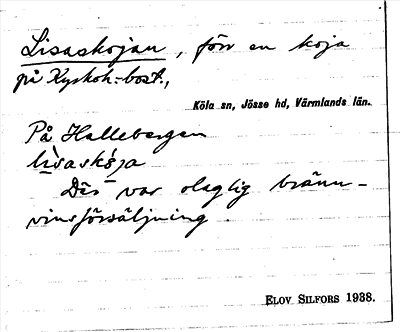 Lisaskojan, förr en koja
på Kyrkoh:bost.,
Köla sn, Jösse hd, Värmlands län.
På Hallebergen
lisaskòja
Där var olaglig bränn-
vinsförsäljning.
ELOV SILFORS 1938.